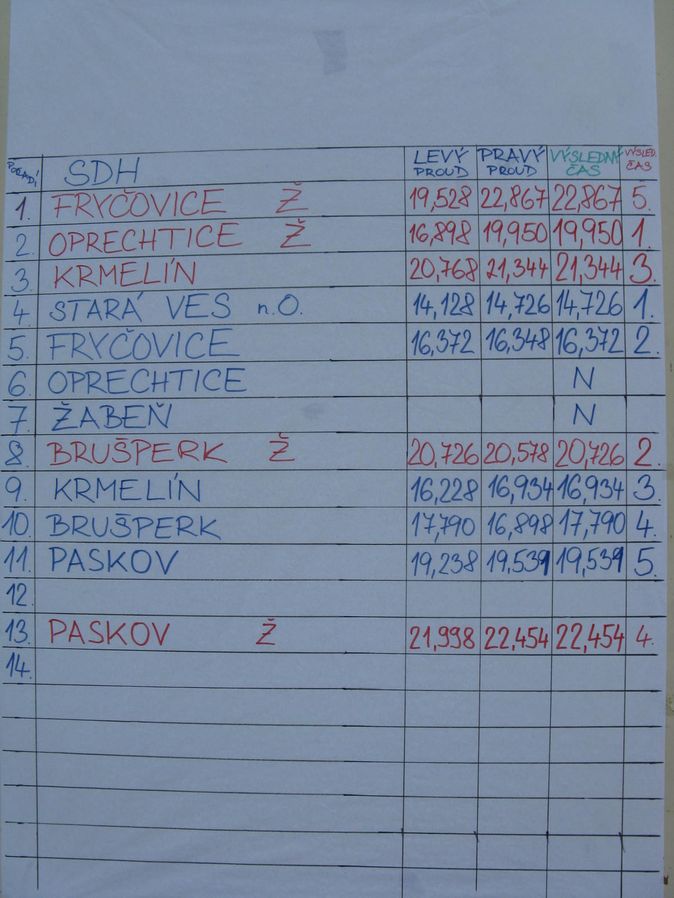 POŘADÍ SDH LEVÝ PROUD PRAVÝ PROUD VÝSLEDNÝ ČAS VÝSLED. ČAS
1. FRYČOVICE Ž 19,528 22,867 22,867 5.
2. OPRECHTICE Ž 16,898 19,950 19,950 1.
3. KRMELÍN 20,768 21,344 21,344 3.
4. STARÁ VES n.O. 14,128 14,726 14,726 1.
5. FRYČOVICE 16,372 16,348 16,372 2.
6. OPRECHTICE N
7. ŽABEŇ N
8. BRUŠPERK Ž 20,726 20,578 20,726 2.
9. KRMELÍN 16,228 16,934 16,934 3.
10. BRUŠPERK 17,790 16,898 17,790 4.
11. PASKOV 19,238 19,539 19,539 5.
12.
13. PASKOV Ž 21,998 22,454 22,454 4.
14.